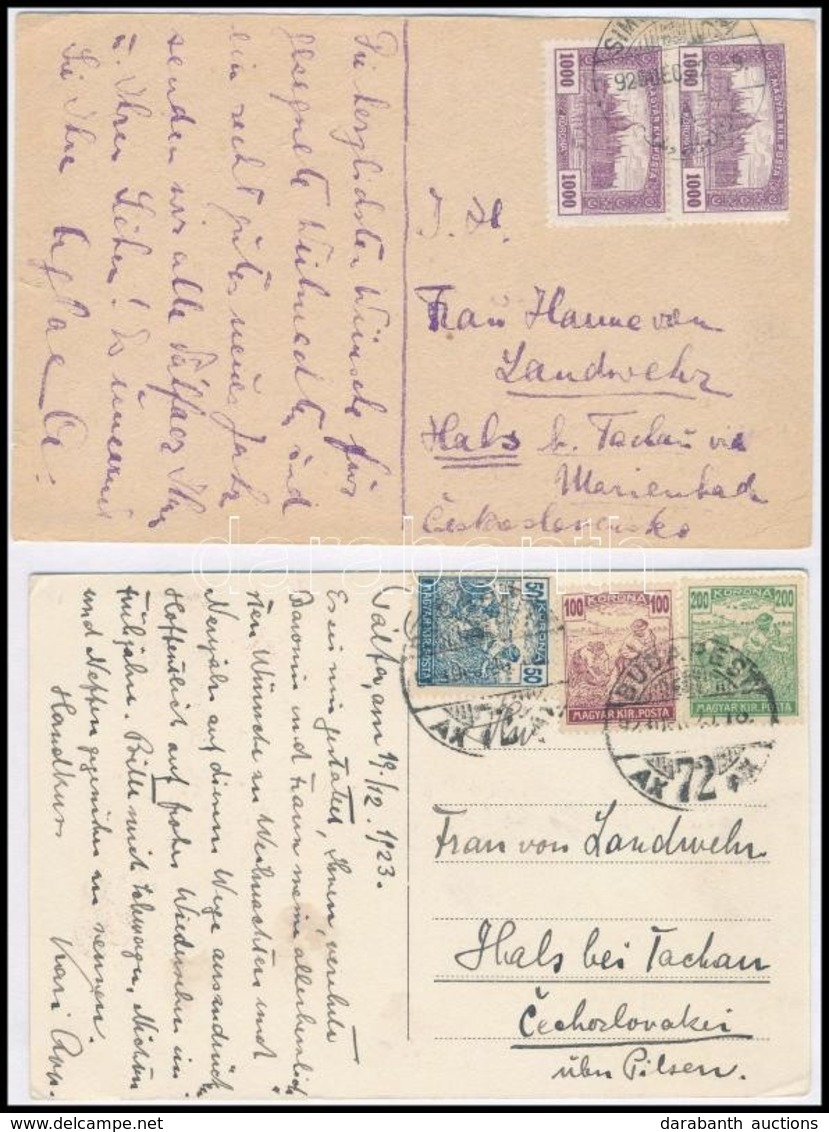 Die herzlichsten Wünsche für
gesegnete Weihnachten und
ein recht gutes neues Jahr
senden wir alle Pálfaer Ihnen
u. Ihren Lieben!
Sie Ihre
1000 1000
MAGYAR KIR. POSTA
KORONA
1000 1000
MAGYAR KIR. POSTA
KORONA
SIM
Frau Hanne von
Landwehr
Hals b. Tachau via
Marienbad
Československo
darabanth
Pálfa, am 19./12. 1923.
Es sei mir gestattet, Ihnen, verehrte
Baronin und Frau meine allerherzlich
sten Wünsche zu Weihnachten und
Neujahr auf diesem Wege auszudrücken
Hoffentlich auf frohes Wiedersehen im
Frühjahr. Bitte mich Schwager, Nichten
und Neffen gegenüber zu nennen.
Handkuss
50 KORONA 50
MAGYAR KIR. POSTA
100 KORONA 100
MAGYAR KIR. POSTA
200 KORONA 200
MAGYAR KIR. POSTA
AX
BUDAPEST
AX 72 AX
Frau von Landwehr
Hals bei Tachau
Čechoslovakei
über Pilsen.
darabanth auctions